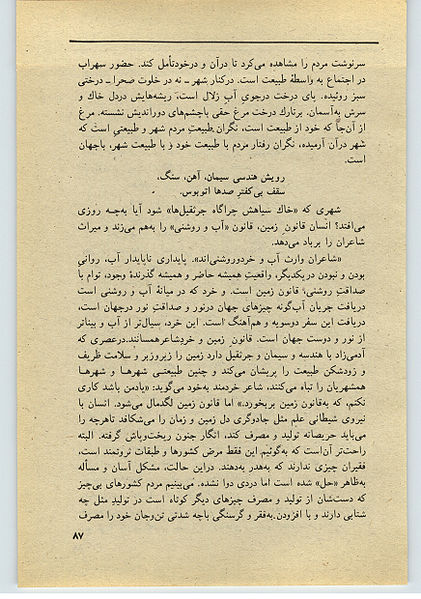 سرنوشت مردم را مشاهده می‌کرد تا درآن و درخودتأمل کند. حضور سهراب
در اجتماع به واسطهٔ طبیعت است. درکنار شهر ـ نه در خلوت صحرا ـ درختی
سبز روئیده. پای درخت درجوی آب زلال است، ریشه‌هایش دردل خاك و
سرش به‌آسمان. برتارك درخت مرغ حقی باچشم‌های دوراندیش نشسته. مرغ
از آن‌جا که خود از طبیعت است، نگران طبیعت مردم شهر و طبیعتی است که
شهر درآن آرمیده، نگران رفتار مردم با طبیعت خود و با طبیعت شهر، باجهان
است.
رویش هندسی سیمان، آهن، سنگ،
سقف بی‌کفتر صدها اتوبوس.
شهری که «خاك سیاهش چراگاه جرثقیل‌ها» شود آیا به‌چه روزی
می‌افتد؟ انسان قانون زمین، قانون «آب و روشنی» را به‌هم می‌زند و میراث
شاعران را برباد می‌دهد.
«شاعران وارث آب و خردوروشنی‌اند». پایداری ناپایدار آب، روانی
بودن و نبودن دریکدیگر، واقعیت همیشه حاضر و همیشه گذرندهٔ وجود، توام با
صداقت روشنی، قانون زمین است. و خرد که در میانهٔ آب و روشنی است
دریافت جریان آب‌گونه چیزهای جهان درنور و صداقت نور درجهان است،
دریافت این سفر دوسویه و هم‌آهنگ است. این خرد، سیال‌تر از آب و بیناتر
از نور و دوست جهان است. قانون زمین و خردشاعرهمسانند.درعصری که
آدمی‌زاد با هندسه و سیمان و جرثقیل دارد زمین را زیروزبر و سلامت ظریف
و زودشکن طبیعت را پریشان می‌کند و چنین طبیعتی شهرها و شهرها
همشهریان را تباه می‌کنند، شاعر خردمند به‌خود می‌گوید: «یادمن باشد کاری
نکنم، که به‌قانون زمین بربخورد.» اما قانون زمین لگدمال می‌شود. انسان با
نیروی شیطانی علم مثل جادوگری دل زمین و زمان را می‌شکافد تاهرچه را
می‌یابد حریصانه تولید و مصرف کند، انگار جنون ریخت‌وپاش گرفته. البته
راحت‌تر آن‌است که به‌گوئیم این فقط مرض کشورها و طبقات ثروتمند است،
فقیران چیزی ندارند که به‌هدر به‌دهند. دراین حالت، مشکل آسان و مسأله
به‌ظاهر «حل» شده است اما دردی دوا نشده. می‌بینیم مردم کشورهای بی‌چیز
که دست‌شان از تولید و مصرف چیزهای دیگر کوتاه است در تولید مثل چه
شتابی دارند و با افزودن به‌فقر و گرسنگی باچه شدتی تن‌وجان خود را مصرف
۸۷